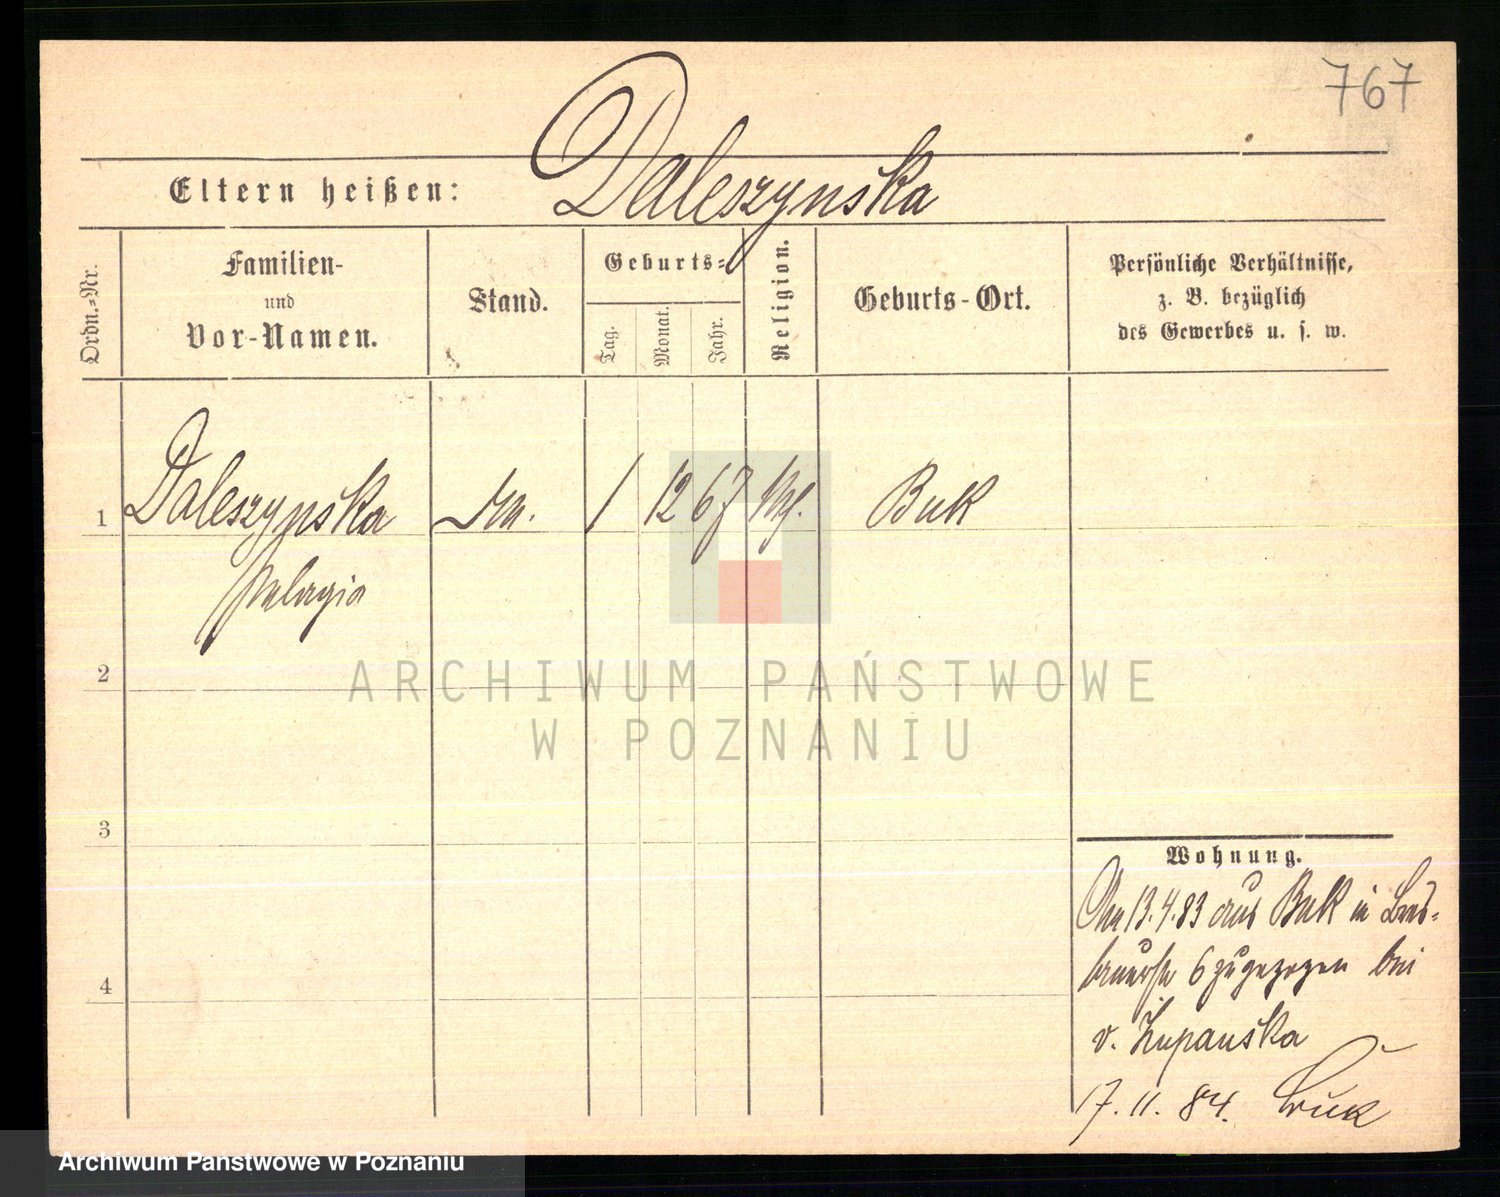 767
Eltern heißen: Daleszynska
Ordn.=Nr.
Familien-
und
Vor-Namen.
Stand.
Geburts=
Tag.
Monat.
Jahr.
Religion.
Geburts-Ort.
Persönliche Verhältnisse,
z. B. bezüglich
des Gewerbes u. s. w.
1 Daleszynska 1 12 67 Buk
Pelagia
2
3
4
Wohnung.
13.4.83 aus Buk in
6 zugezogen bei
v. Zupanska
17. 11. 84. Buk
ARCHIWUM PAŃSTWOWE
W POZNANIU
Archiwum Państwowe w Poznaniu